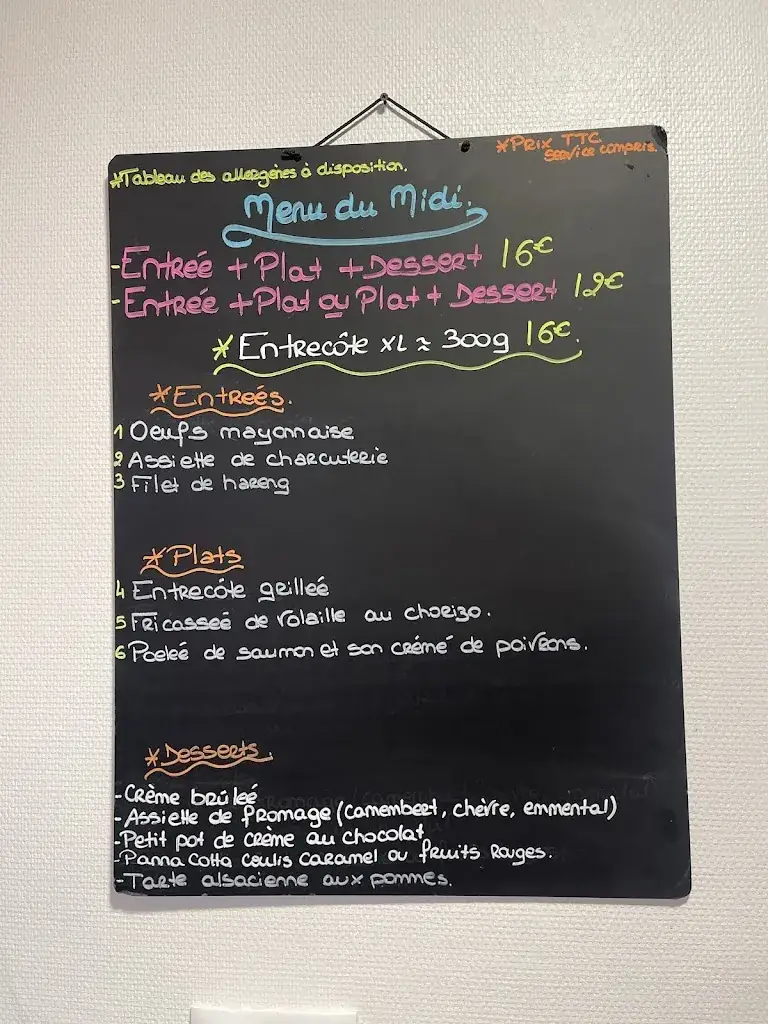 *Prix TTC
service compris.
*Tableau des allergènes à disposition.
Menu du Midi.
-Entrée + Plat + Dessert 16€
-Entrée + Plat ou Plat + Dessert 12€
*Entrecôte XL ≈ 300g 16€.
*Entreés.
1 Oeufs mayonnaise
2 Assiette de charcuterie
3 Filet de hareng
*Plats
4 Entrecôte grilleé
5 Fricasseé de volaille au chorizo.
6 Poeleé de saumon et son crémé de poivrons.
*Desserts.
-Crème brûleé
-Assiette de fromage (camembert, chèvre, emmental)
-Petit pot de crème au chocolat
-Panna Cotta coulis caramel ou fruits rouges.
-Tarte alsacienne aux pommes.